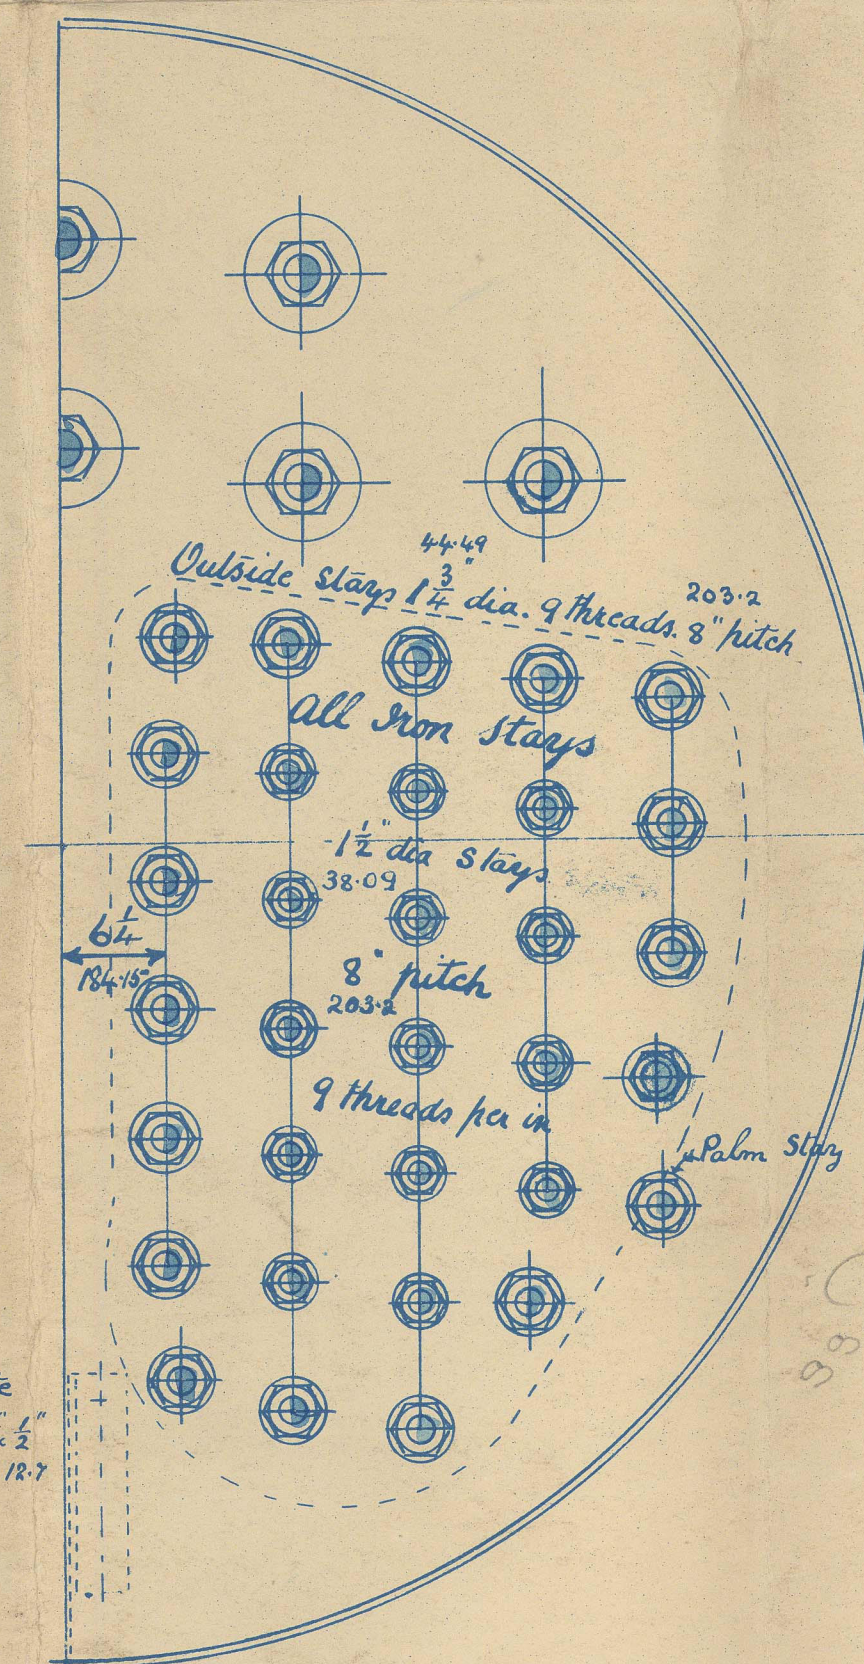 44·49
Outside Stays 1 3/4" dia. 9 threads. 8" pitch
203·2
All Iron Stays
1 1/2" dia Stays
38·09
6 1/4
184·15
8" pitch
203·2
9 threads per in
Palm Stay
1/2"
12·7